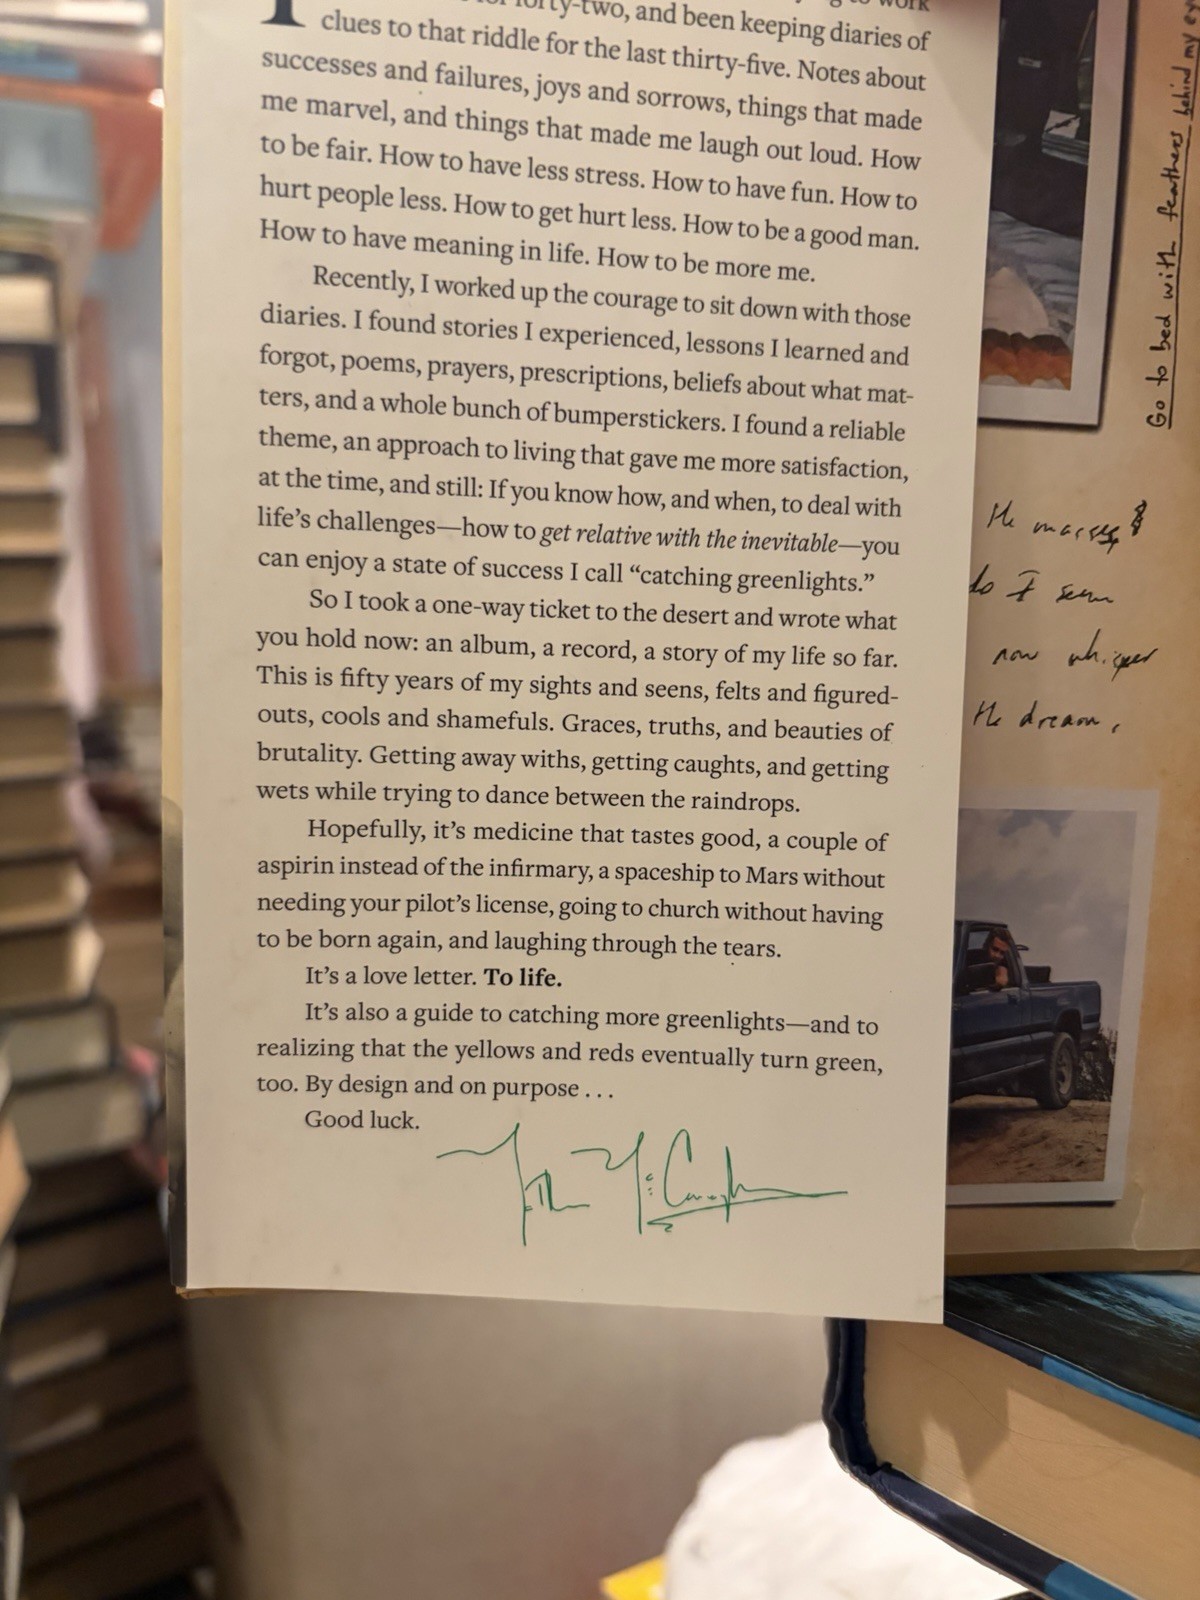 forty-two, and been keeping diaries of
clues to that riddle for the last thirty-five. Notes about
successes and failures, joys and sorrows, things that made
me marvel, and things that made me laugh out loud. How
to be fair. How to have less stress. How to have fun. How to
hurt people less. How to get hurt less. How to be a good man.
How to have meaning in life. How to be more me.
Recently, I worked up the courage to sit down with those
diaries. I found stories I experienced, lessons I learned and
forgot, poems, prayers, prescriptions, beliefs about what mat-
ters, and a whole bunch of bumperstickers. I found a reliable
theme, an approach to living that gave me more satisfaction,
at the time, and still: If you know how, and when, to deal with
life's challenges—how to get relative with the inevitable—you
can enjoy a state of success I call “catching greenlights.”
So I took a one-way ticket to the desert and wrote what
you hold now: an album, a record, a story of my life so far.
This is fifty years of my sights and seens, felts and figured-
outs, cools and shamefuls. Graces, truths, and beauties of
brutality. Getting away withs, getting caughts, and getting
wets while trying to dance between the raindrops.
Hopefully, it's medicine that tastes good, a couple of
aspirin instead of the infirmary, a spaceship to Mars without
needing your pilot's license, going to church without having
to be born again, and laughing through the tears.
It's a love letter. To life.
It's also a guide to catching more greenlights—and to
realizing that the yellows and reds eventually turn green,
too. By design and on purpose . . .
Good luck.
Go to bed with feathers behind my
the masses
do I seem
now whisper
the dream,